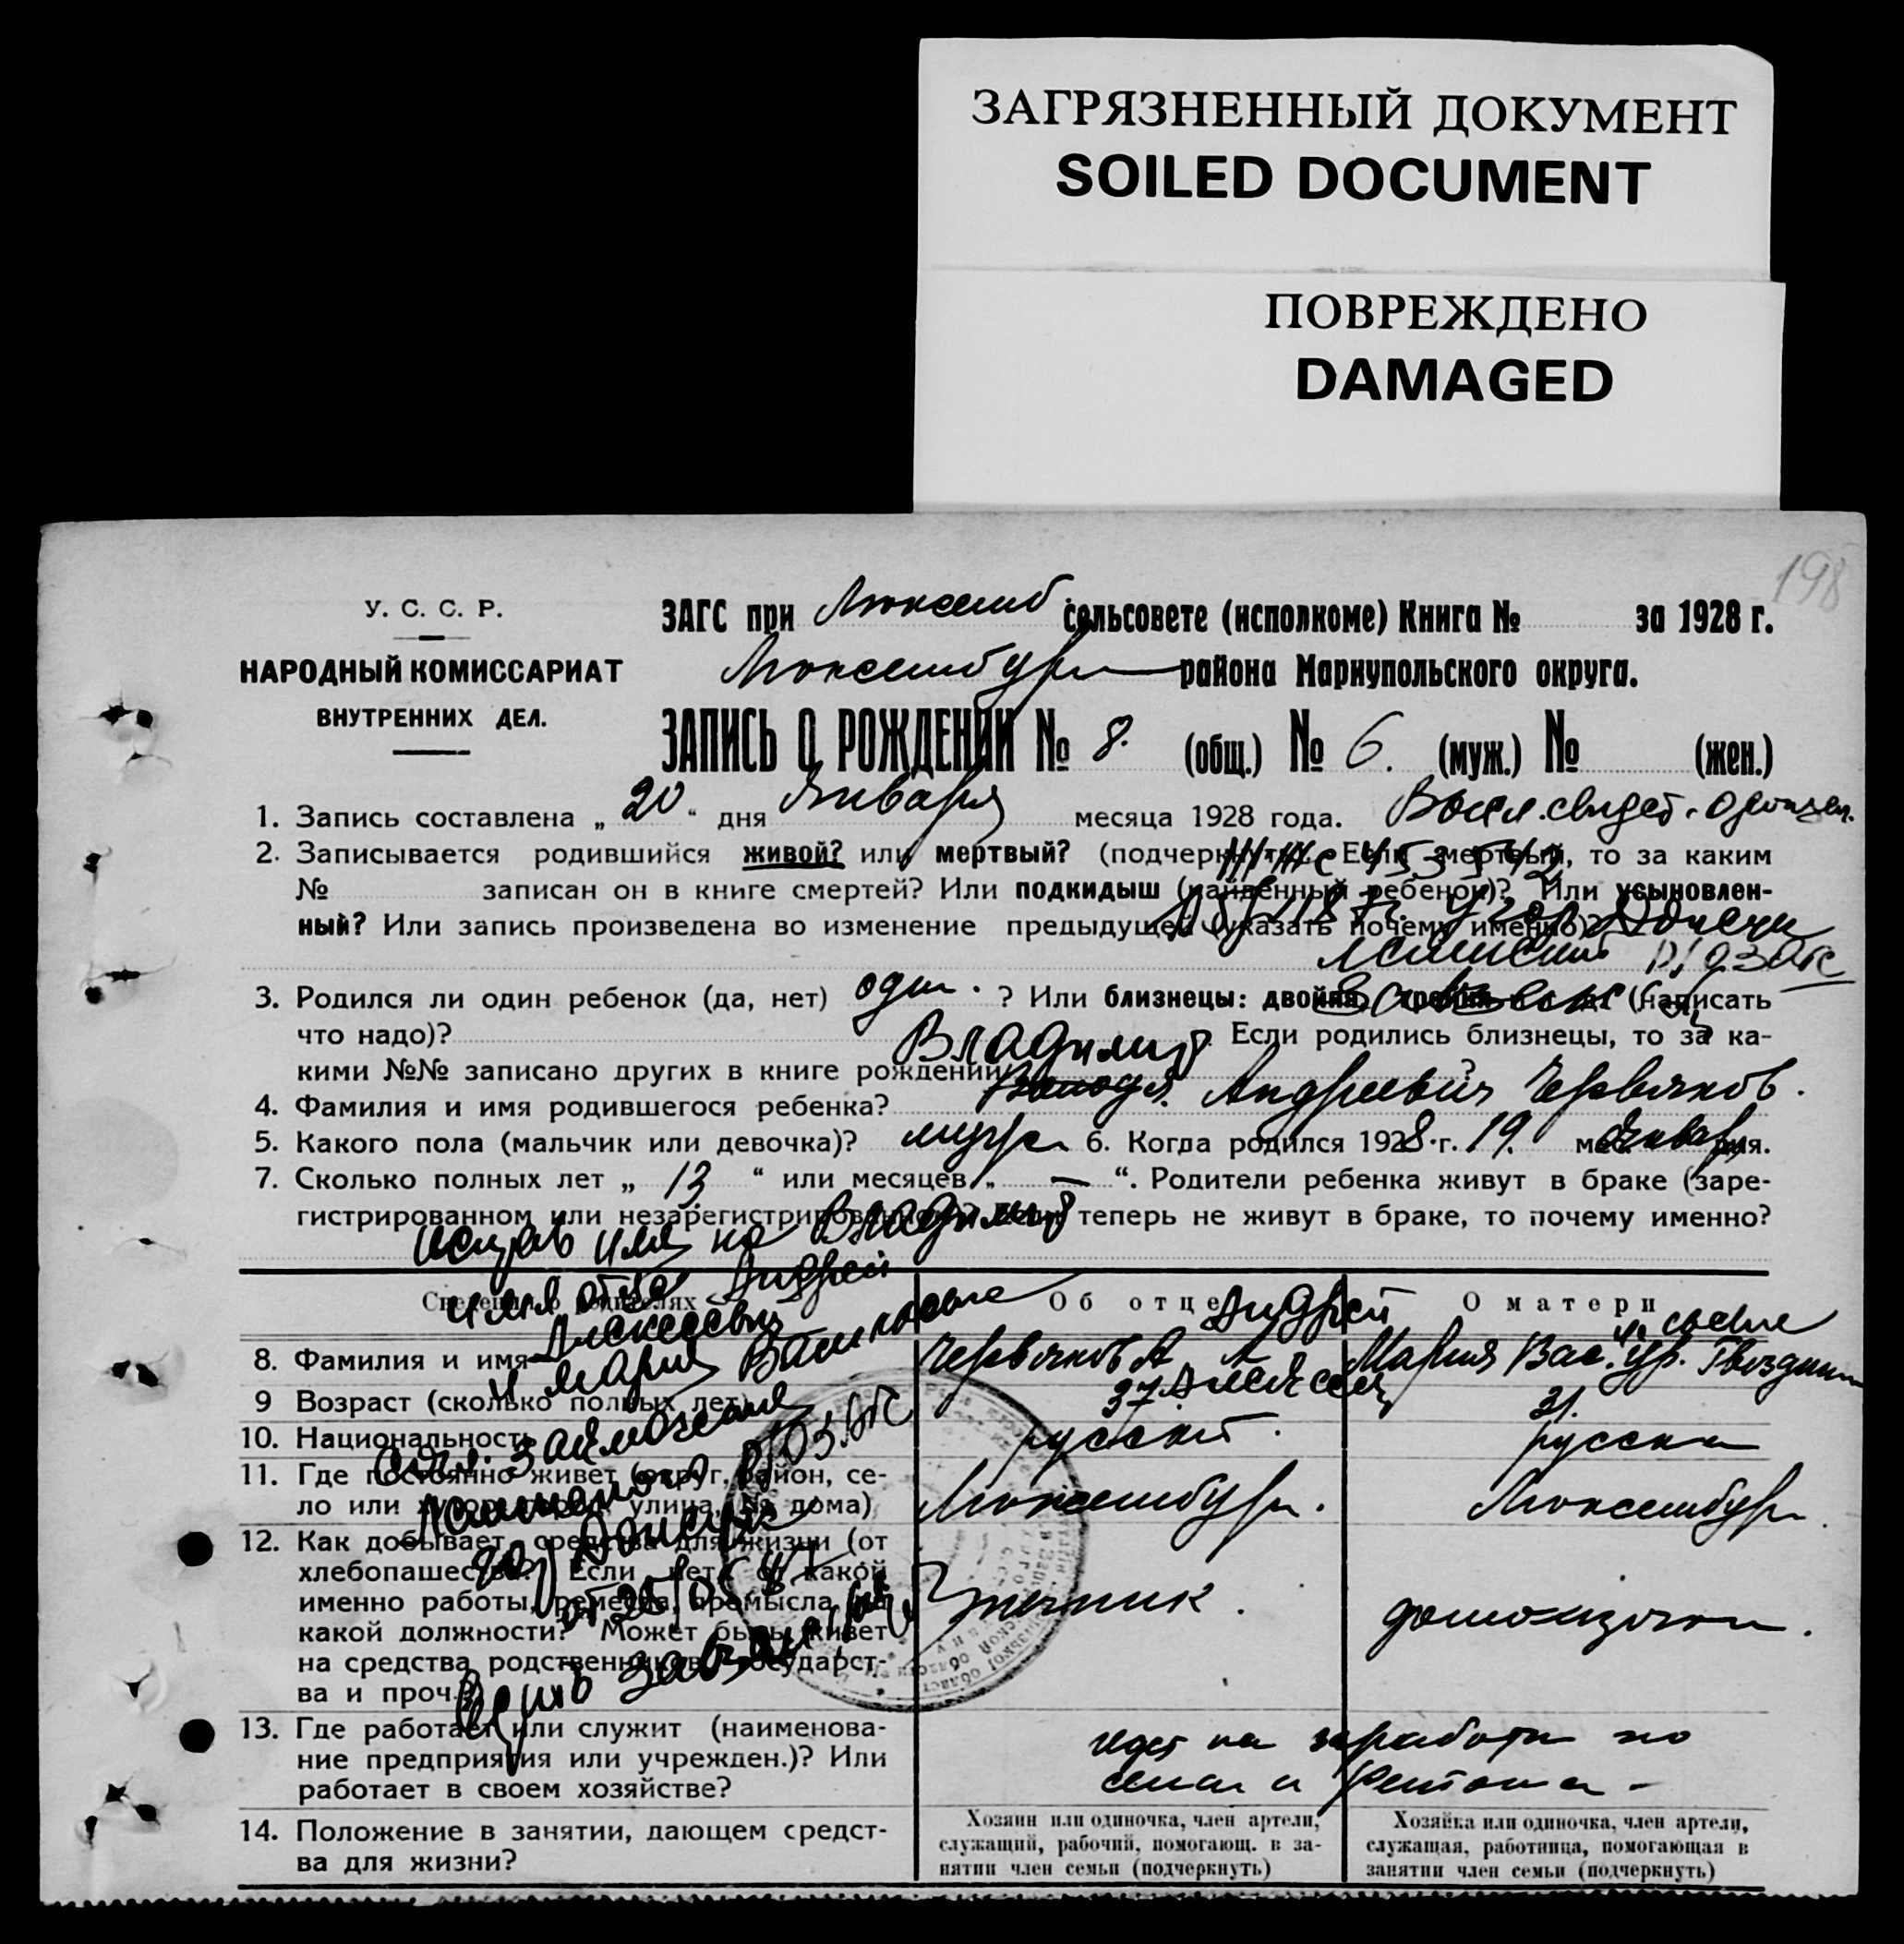 ЗАГРЯЗНЕННЫЙ ДОКУМЕНТ
SOILED DOCUMENT
ПОВРЕЖДЕНО
DAMAGED
198
У. С. С. Р.
НАРОДНЫЙ КОМИССАРИАТ
ВНУТРЕННИХ ДЕЛ.
ЗАГС при Люксемб. сельсовете (исполкоме) Книга № за 1928 г.
Люксембург района Мариупольского округа.
ЗАПИСЬ О РОЖДЕНИИ № 8. (общ.) № 6. (муж.) № (жен.)
1. Запись составлена „ 20 “ дня Января месяца 1928 года.
2. Записывается родившийся живой? или мертвый? (подчеркнуть). Если мертвый, то за каким
№ записан он в книге смертей? Или подкидыш (найденный ребенок)? Или усыновлен-
ный? Или запись произведена во изменение предыдущей (указать почему именно)?
3. Родился ли один ребенок (да, нет) один. ? Или близнецы: двойня, тройня и т. д. (написать
что надо)? Если родились близнецы, то за ка-
кими №№ записано других в книге рождений ?
Владимир
4. Фамилия и имя родившегося ребенка? Володя. Андреевич Червяков.
5. Какого пола (мальчик или девочка)? 6. Когда родился 1928 г. 19. мес. Января дня.
7. Сколько полных лет „ 13 “ или месяцев „ — “. Родители ребенка живут в браке (заре-
гистрированном или незарегистрированном)? Если теперь не живут в браке, то почему именно?
имя на Владимир
имя отца Андрей
Алексеевич
и Мария Васильевна
Сведения о родителях
Об отце
О матери
8. Фамилия и имя
Червяков А. А.
Андрей
Алексеев
Мария Вас. ур.
9 Возраст (сколько полных лет)
37.
31.
10. Национальность
русский.
русская
11. Где постоянно живет (округ, район, се-
ло или хутор, город, улица, № дома)
Люксембург.
Люксембург
12. Как добывает средства для жизни (от
хлебопашества? Если нет, от какой
именно работы, ремесла, промысла, на
какой должности? Может быть живет
на средства родственников, государст-
ва и проч.?
домохозяйка.
13. Где работает или служит (наименова-
ние предприятия или учрежден.)? Или
работает в своем хозяйстве?
на заработки по
14. Положение в занятии, дающем средст-
ва для жизни?
Хозяин или одиночка, член артели,
служащий, рабочий, помогающ. в за-
нятии член семьи (подчеркнуть)
Хозяйка или одиночка, член артели,
служащая, работница, помогающая в
занятии член семьи (подчеркнуть)